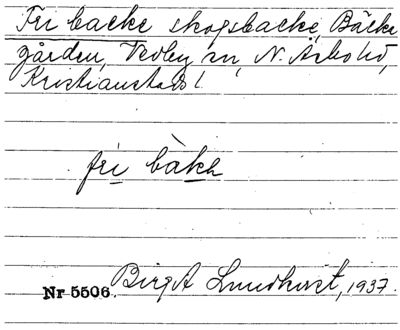 Fri backe skogsbacke, Bäcka
gården, Vedby sn, N. Åsbo hd,
Kristianstads l.
fri bakk
Nr 5506. Birgit Lundkvist, 1937.